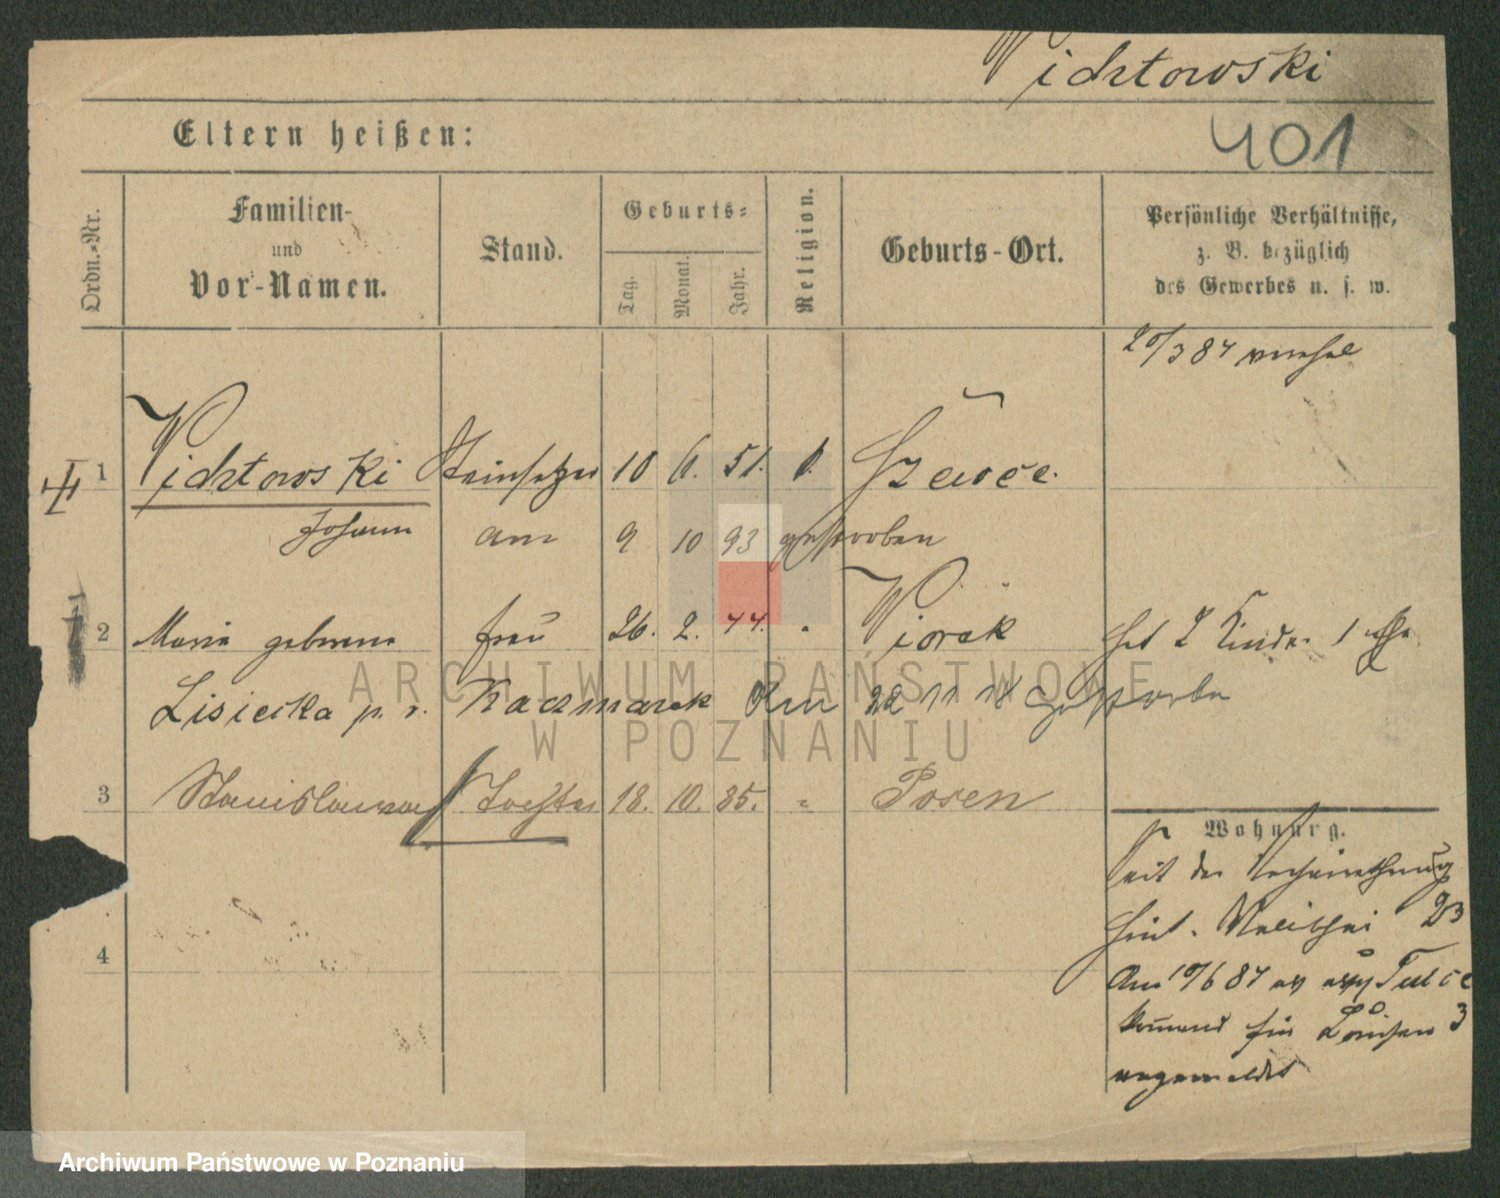 Widztowski
401
Eltern heißen:
Ordn.-Nr.
Familien-
und
Vor-Namen.
Stand.
Geburts-
Tag.
Monat.
Jahr.
Religion.
Geburts-Ort.
Persönliche Verhältnisse,
z. B. bezüglich
des Gewerbes u. s. w.
20/3 84
1 Widztowski Steinsetzer 10 6. 51. Szewce.
Johann am 9 10 93 gestorben
2 Maria geborene Frau 26. 2. 44. " Wiorek hat 2 Kinder 1 Ehe
Lisiecka p. v. Kaczmarek Am 22 11 18 gestorben
3 Stanislawa Tochter 18. 10. 85. " Posen
Wohnung.
Seit der Verheirathung
hint. Wallischei 23
4
Am 10/6 84
kommend für 3
angemeldet
ARCHIWUM PAŃSTWOWE
W POZNANIU
Archiwum Państwowe w Poznaniu